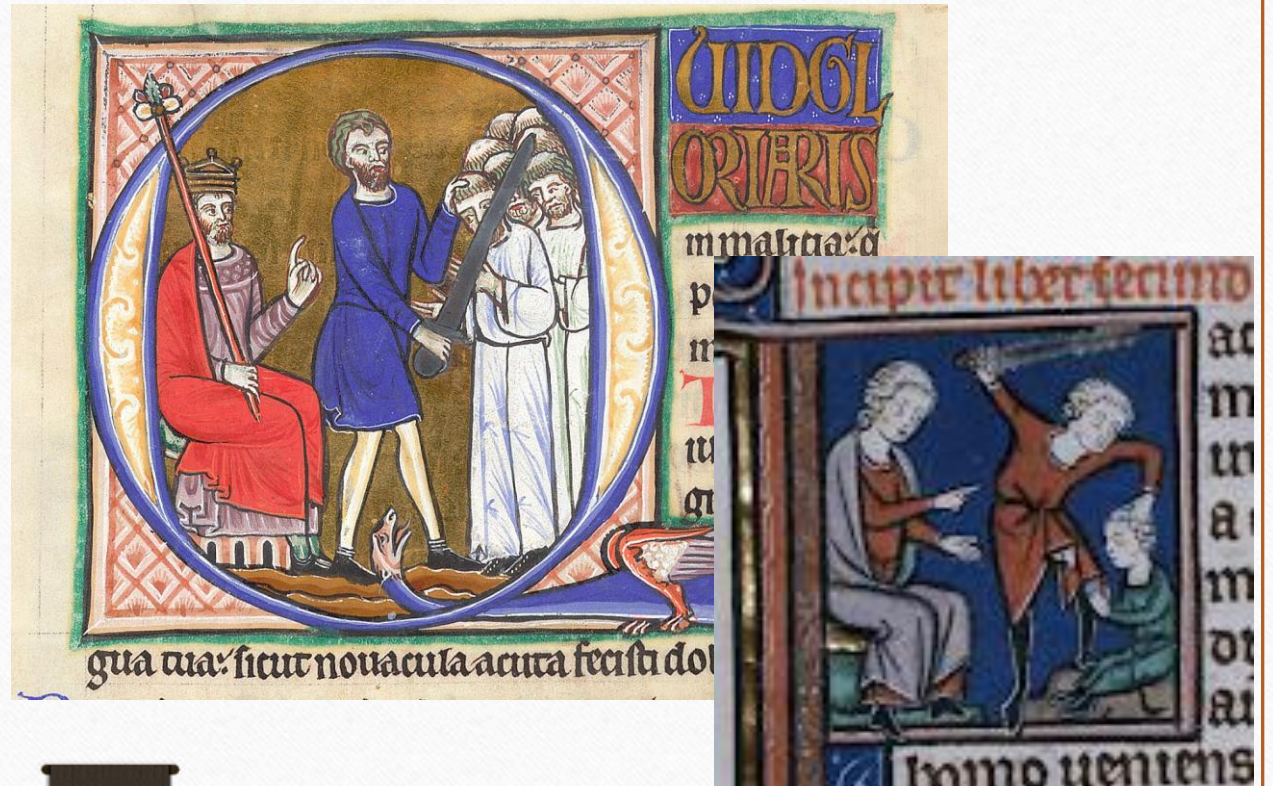 QUIDGL
ORIARIS
in malicia: q
p
gua tua: sicut nouacula acuta fecisti dol
Incipit liber secund
ac
m
in
a
m
homo ueniens